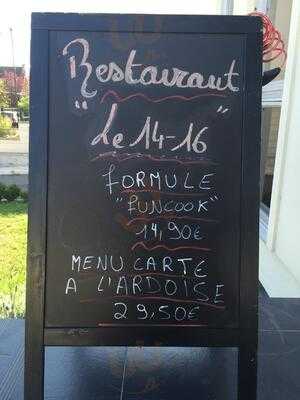 Restaurant
"Le 14-16"
FORMULE
"FUNCOOK"
14,90€
MENU CARTE
A L'ARDOISE
29,50€